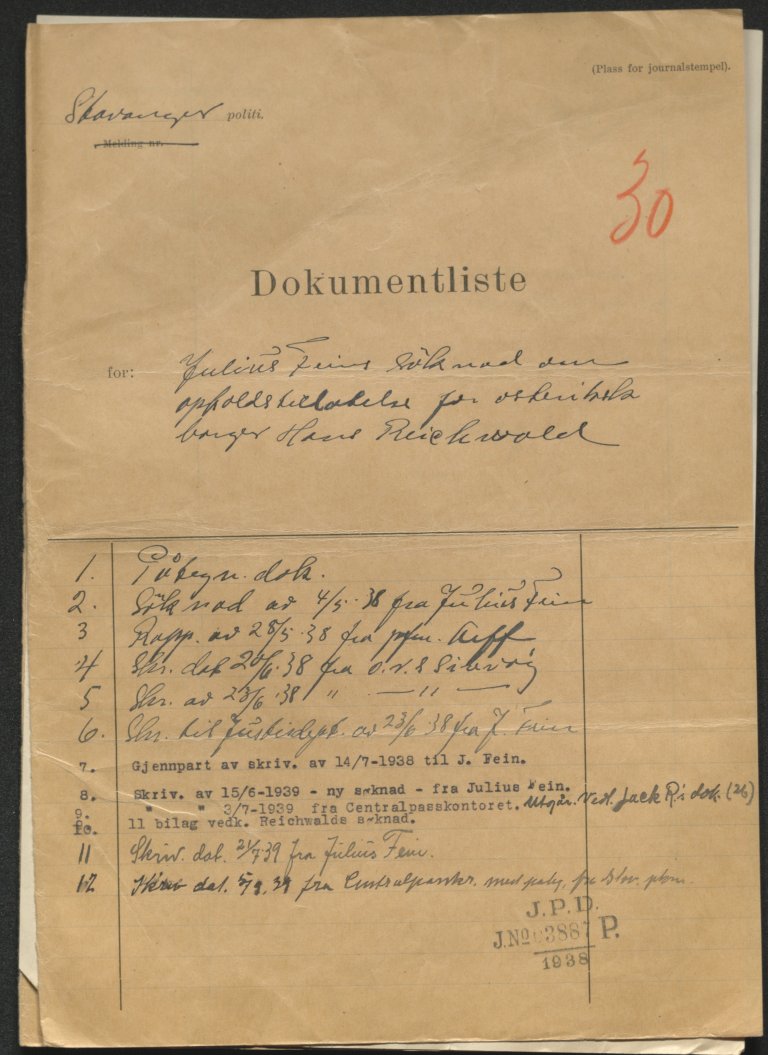 (Plass for journalstempel).
Stavanger politi.
Melding nr.
30
Dokumentliste
for: Julius Feins söknad om
opholdstillatelse for østeriksk
borger Hans Reichwald
1. Påtegn. dok.
2. Söknad av 4/5.38 fra Julius Fein
3 Rapp. av 28/5.38 fra pfm.
4 Skr. dat 20/6.38 fra o.r.s
5 Skr. av 23/6.38 " — " —
6. Skr. til Justisdept. av 23/6.38 fra J. Fein
7. Gjennpart av skriv. av 14/7-1938 til J. Fein.
8. Skriv. av 15/6-1939 - ny søknad - fra Julius Fein.
9. " " 3/7-1939 fra Centralpasskontoret. Utgår. Vedl. Jack R's dok. (26)
10. 11 bilag vedk. Reichwalds søknad.
11 Skriv. dat. 21/7.39 fra Julius Fein.
12 Skriv dat. 5/9.39 fra Centralpasskr. med påteg. fra Stav. pkm.
J.P.D.
J.No 03887 P.
1938